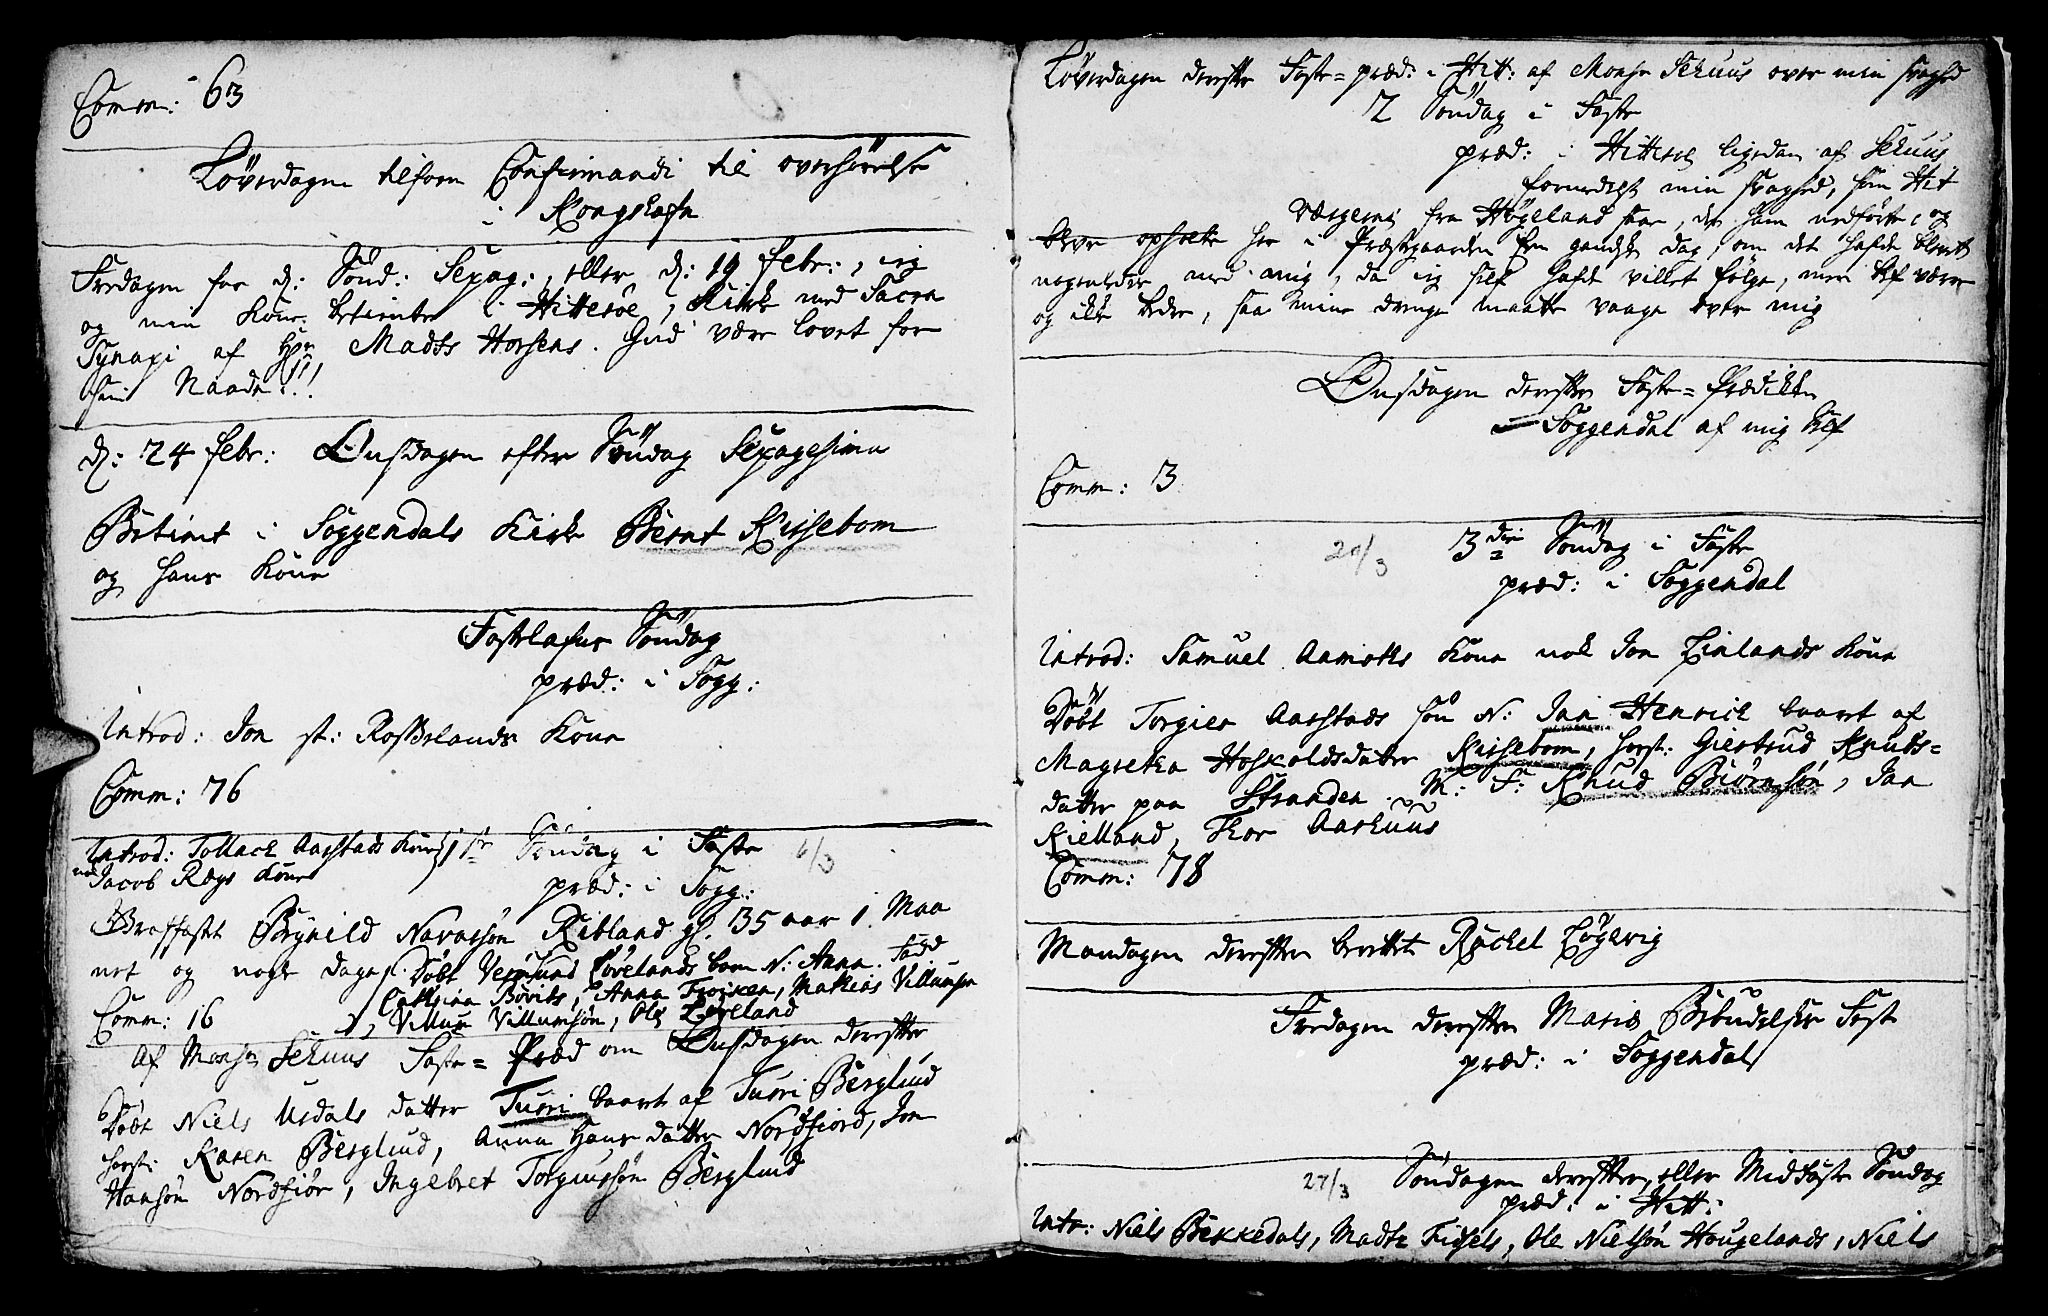 Comm: 63
Løverdagen tilforn Confirmandi til overhørelse
i Kongshafn
Fredagen for d: Sönd: Sexag:, eller d: 19 febr:, jeg
og min Kone betiente i Hitterøe Kirke med Sacra
Synapi af Hr Madts Horsens. Gud være lovet for
sin Naade!!!
d: 24 febr: Onsdagen efter Søndag Sexagesima
Betient i Soggendals Kirke Bernt Kirsebom
og hans Kone
Fastelafns Søndag
præd: i Sogg:
Introd: Jon st: Rosslands Kone
Comm: 76
Introd: Tollach Aarstads Kone 1ste Søndag i Faste 6/3
nok Jacob Rægs Kone præd: i Sogg:
Graffæst Brynild Navarsøn Ribland gl. 35 aar 1. Maa
net og nogle dage. Döbt Vermund Løvelands barn N: Anna. Fad
Cathrina Bövits, Anna Froiken, Mathias Villumsen
Comm: 16 Villum Villumsøn, Ole Løveland
Af Monsr Schuus Faste=Præd om Onsdagen derefter
Döbt Niels Urdals datter Turri baaret af Turri Berglind
horst: Karen Berglind, Anna Hans datter Nordfiord, Jon
Hansøn Nordfiör, Ingebret Torgiussøn Berglind
Løverdagen derefter Faste=præd: i Hitt: af Monsr Schuus over min svaghed
2 Søndag i Faste
præd: i Hitterøe ligedan af Schuus
formedelst min svaghed, som Hit
værgerne fra Högeland saae, der ham nedførte, og
bleve opholte her i Præstgaarden Een gandske dag, om det hafde blevet
nogenledes med mig, da jeg self hafde villet følge, men blef være
og ikke bedre, saa mine drenge maatte vaage over mig
Onsdagen derefter Faste=Prædiken
i Soggendal af mig self
Comm: 3
20/3 3die Søndag i Faste
præd: i Soggendal
Introd: Samuel Aamots Kone nok Jon Linlands Kone
Döbt Torgier Aarstads søn N: Jan Henrich baaret af
Magreta Hoskoldsdatter Kirsebom, horst: Giertrud Knuds=
datter paa Stranden. M: F: Knud Biörnsøn, Jan
Kielland, Thor Aarhuus
Comm: 78
Mandagen derefter berettet Rachel Løgevig
Fredagen derefter Mariæ Bebudelses Fest
præd: i Soggendal
27/3 Søndagen derefter, eller Midfaste Søndag
præd: i Hitt:
Intr: Niels Bekkedals, Madts Fidsels, Ole Nielsøn Hougelands, Niels